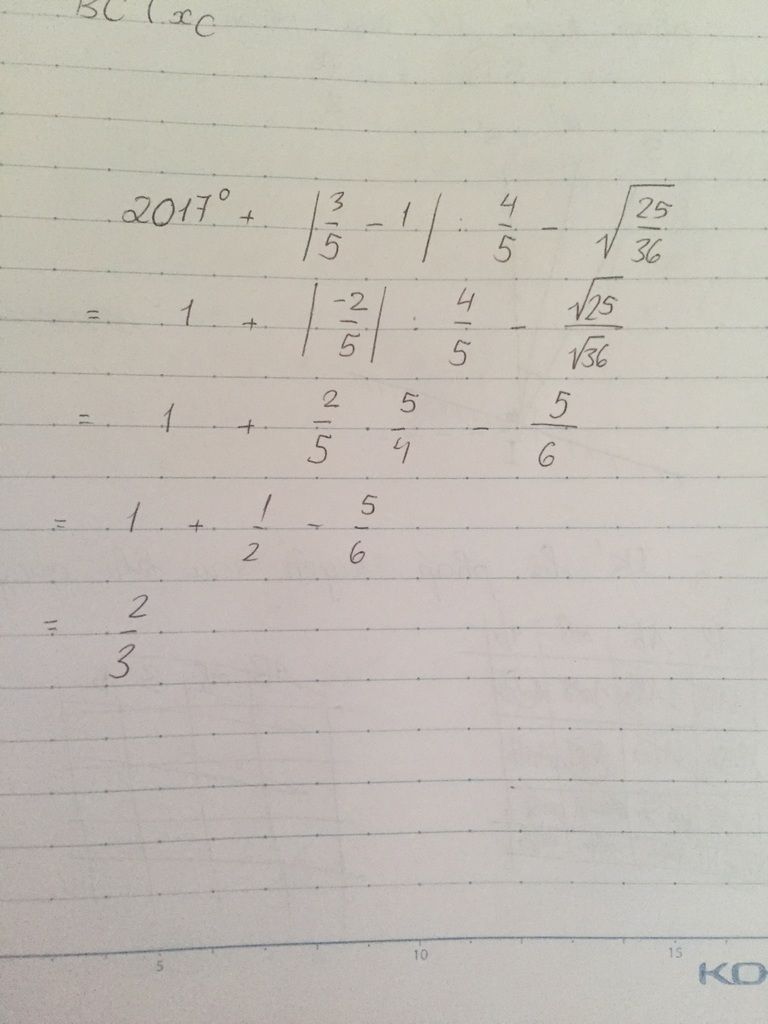 BC ( x_C
2017⁰ + |3/5 - 1| : 4/5 - √(25/36)
= 1 + |-2/5| : 4/5 - √25/√36
= 1 + 2/5 . 5/4 - 5/6
= 1 + 1/2 - 5/6
= 2/3
5 10 15
KO